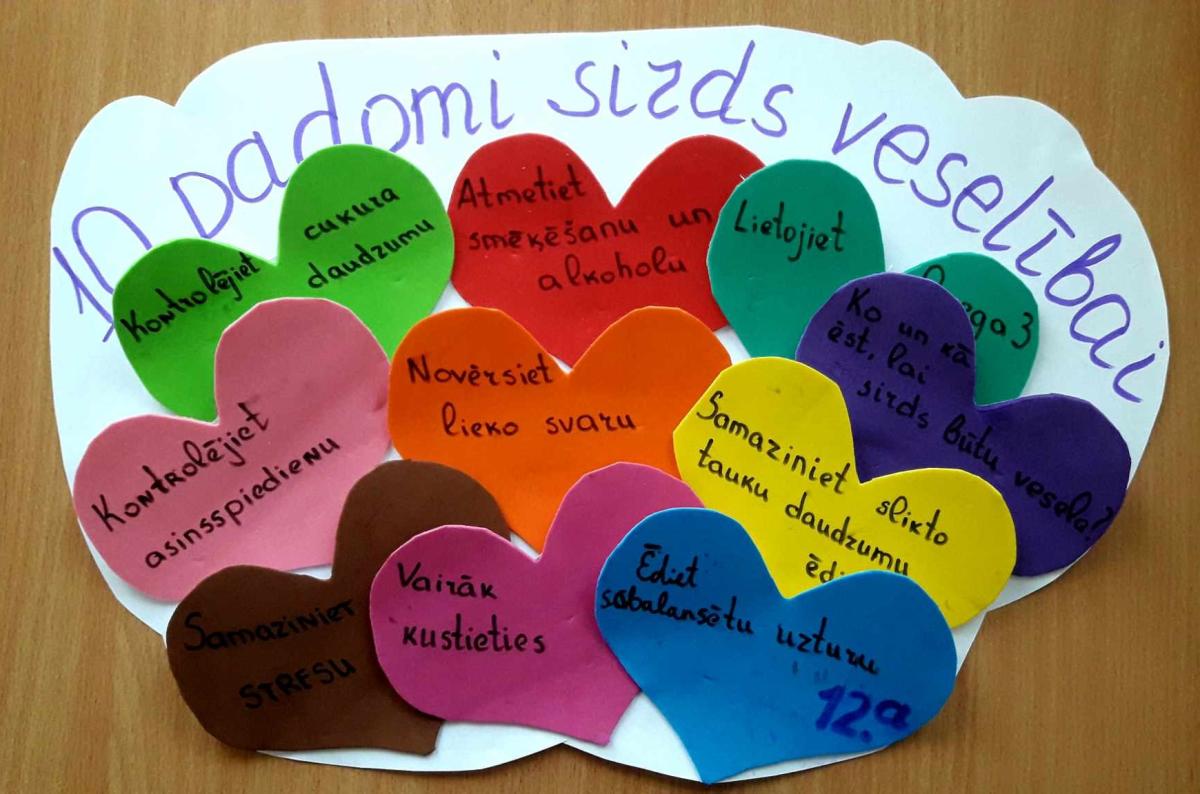 10 padomi sirds veselībai
Kontrolējiet
cukura
daudzumu
Atmetiet
smēķēšanu un
alkoholu
Lietojiet
3
Ko un kā
ēst, lai
sirds būtu vesela?
Kontrolējiet
asinsspiedienu
Novērsiet
lieko svaru
Samaziniet slikto
tauku daudzumu
Samaziniet
STRESU
Vairāk
kustieties
Ēdiet
sabalansētu uzturu
12.a